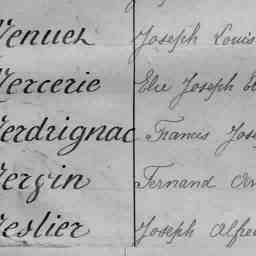 Venuez Joseph Louis
Mercerie Elie Joseph
Verdrignac Francis Jose
Vergin Fernand
Veslier Joseph Alfre